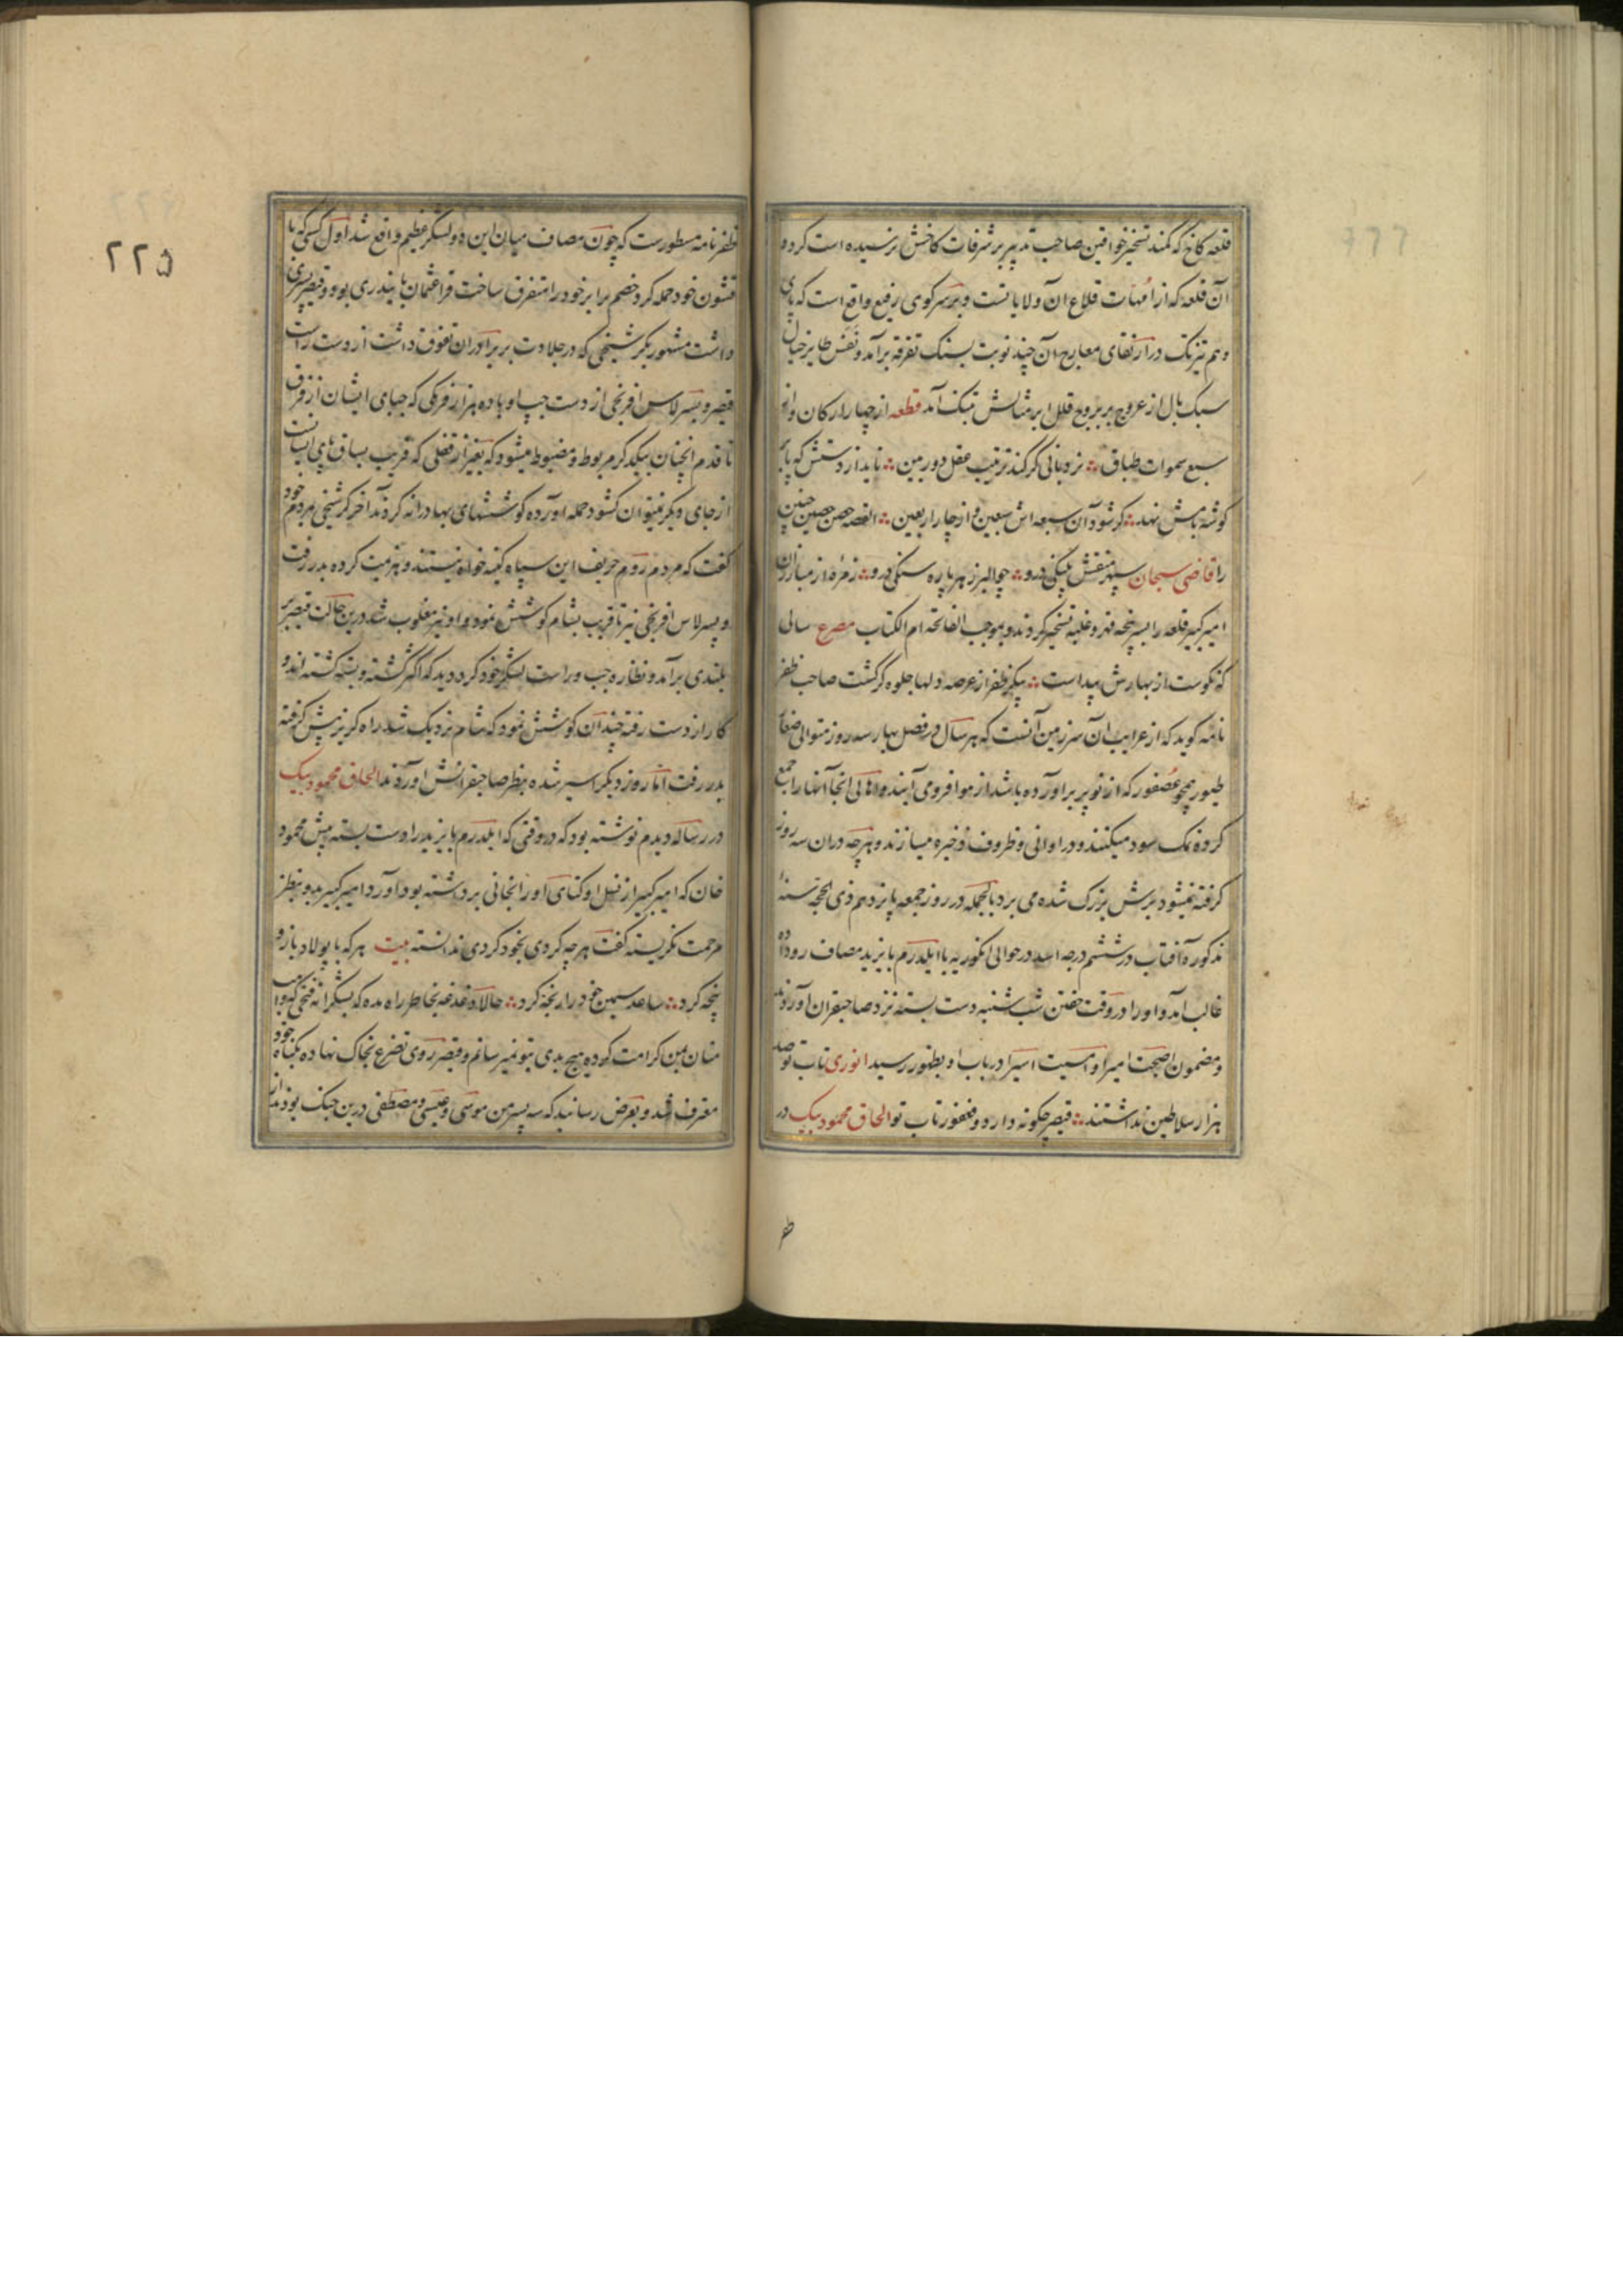 قلعه کاخ که کمند تسخیر خواقین صاحب تدبیر بر شرفات کاخش نرسیده است کرده
آن قلعه که از امهات قلاع آن ولایاتست و بر سر کوی رفیع واقع است که پای
وهم تیزتک در ارتقای معارج آن چند نوبت بسنک تفرقه برآمد و نفس طایر خیال
سبک بال از عروج بر بروج قلل ابر مثالش تنک آمد قطعه از چهار ارکان و از
سبع سموات طباق نردبانی کر کند ترتیب عقل دوربین ناید از دستش که پا بر
کوشه بامش نهد کر شود آن سبعه اش سبعین و از چار اربعین القصه حصن حصین چنین
را قاضی سبحان سپهر منقش پلنکی درو چو البرز هر پاره سنکی درو زمره از مبارزان
امیر کبیر قلعه را بسرپنجه قهر و غلبه تسخیر کردند و بموجب الفاتحه ام الکتاب مصرع سالی
که نکوست از بهارش پیداست پیکر ظفر از عرصه دلها جلوه کر کشت صاحب ظفر
نامه کوید که از غرایب آن سرزمین آنست که هر سال در فصل بهار سه روز متوالی صغار
طیور همچو عصفور که از نو پر برآورده باشد از هوا فرو می آیند و اهالی آنجا آنها را جمع
کرده نمک سود میکنند و در اوانی و ظروف ذخیره میسازند و هر چه در آن سه روز
کرفته نمیشود پرش بزرک شده می پرد بالجمله در روز جمعه پانزدهم ذی الحجه سنه
مذکوره آفتاب در ششم درجه اسد در حوالی انکوریه با ایلدرم بایزید مصاف روداده
غالب آمد و او را در وقت خفتن شب شنبه دست بسته نزد صاحبقران آوردند
و مضمون اصبحت امیرا و امسیت اسیرا در باب او بظهور رسید انوری تاب تو صد
هزار سلاطین نداشتند قیصر چکونه دارد و فغفور تاب تو الحاق محمود بیک در
ظفر
ظفرنامه مسطورست که چون مصاف میان این دو لشکر عظیم واقع شد اول کسی که با
قشون خود حمله کرد و خصم برابر خود را متفرق ساخت قراعثمان بایندری بود و قیصر پسری
داشت مشهور بکرشجی که در جلادت بر برادران تفوق داشت از دست راست
قیصر و پسر لاس افرنجی از دست چپ او با ده هزار فرنکی که جبهای ایشان از فرق
تا قدم آنچنان بیکدکر مربوط و مضبوط میشود که بغیر از قفلی که قریب بساق پای ایشانست
از جای دیکر نتوان کشود حمله آورده کوششهای بهادرانه کردند آخر کرشجی بمردم خود
کفت که مردم روم حریف این سپاه کینه خواه نیستند و هزیمت کرده بدر رفت
و پسر لاس افرنجی نیز تا قریب بشام کوشش نمود و او نیز مغلوب شد درین حالت قیصر بر
بلندی برآمد و نظاره چپ و راست لشکر خود کرد دید که اکثر کشته و بسته کشته اند و
کار از دست رفته چندان کوشش نمود که شام نزدیک شد راه کریز پیش کرفته
بدر رفت اما روز دیکر اسیر شده بنظر صاحبقرانش آوردند الحاق محمود بیک
در رساله دیدم نوشته بود که در وقتی که ایلدرم بایزید را دست بسته پیش محمود
خان که امیر کبیر از نسل اوکتای او را بخانی برداشته بود آورد امیر کبیر بدو بنظر
مرحمت نکریسته کفت هر چه کردی بخود کردی ندانسته بیت هر که با پولاد بازو
پنجه کرد ساعد سیمین خود را رنجه کرد حالا دغدغه بخاطر راه مده که بشکرانه فتحی که واهب
منان بمن کرامت کرده هیچ بدی بتو نمیرسانم و قیصر روی تضرع بخاک نهاده بکناه خود
معترف شد و بعرض رسانید که سه پسر من موسی و عیسی و مصطفی درین جنک بودند از
٢٢٥